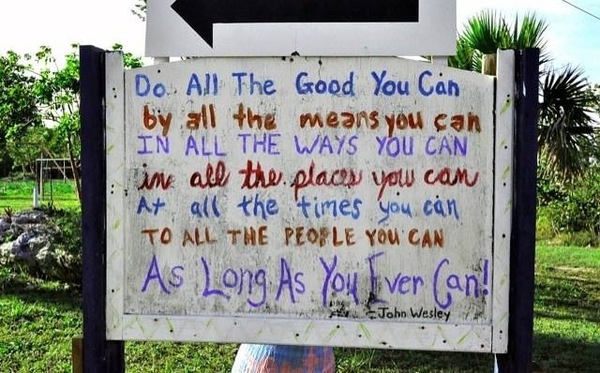 Do All The Good You Can
by all the means you can
IN ALL THE WAYS YOU CAN
in all the places you can
At all the times you can
TO ALL THE PEOPLE YOU CAN
As Long As You Ever Can!
- John Wesley